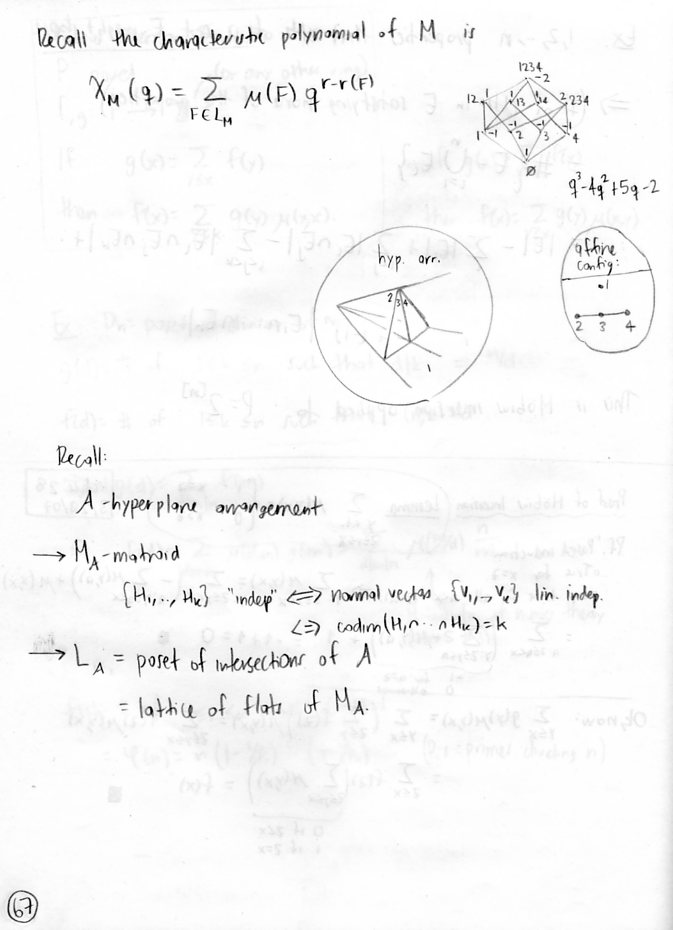 Recall the characteristic polynomial of M is
χ_M(q) = Σ_{F∈L_M} μ(F) q^{r-r(F)}
1234
-2
12 1 1 13 1 14 2 234
1 -1 -1 2 -1 3 -1 4
1
∅
q³-4q²+5q-2
hyp. arr.
2 3 4
1
affine
config:
•1
2 3 4
Recall:
A - hyperplane arrangement
→ M_A - matroid
{H₁,..., H_k} "indep" ⟺ normal vectors {V₁,..., V_k} lin. indep.
⟺ codim(H₁∩...∩H_k) = k
→ L_A = poset of intersections of A
= lattice of flats of M_A.
67